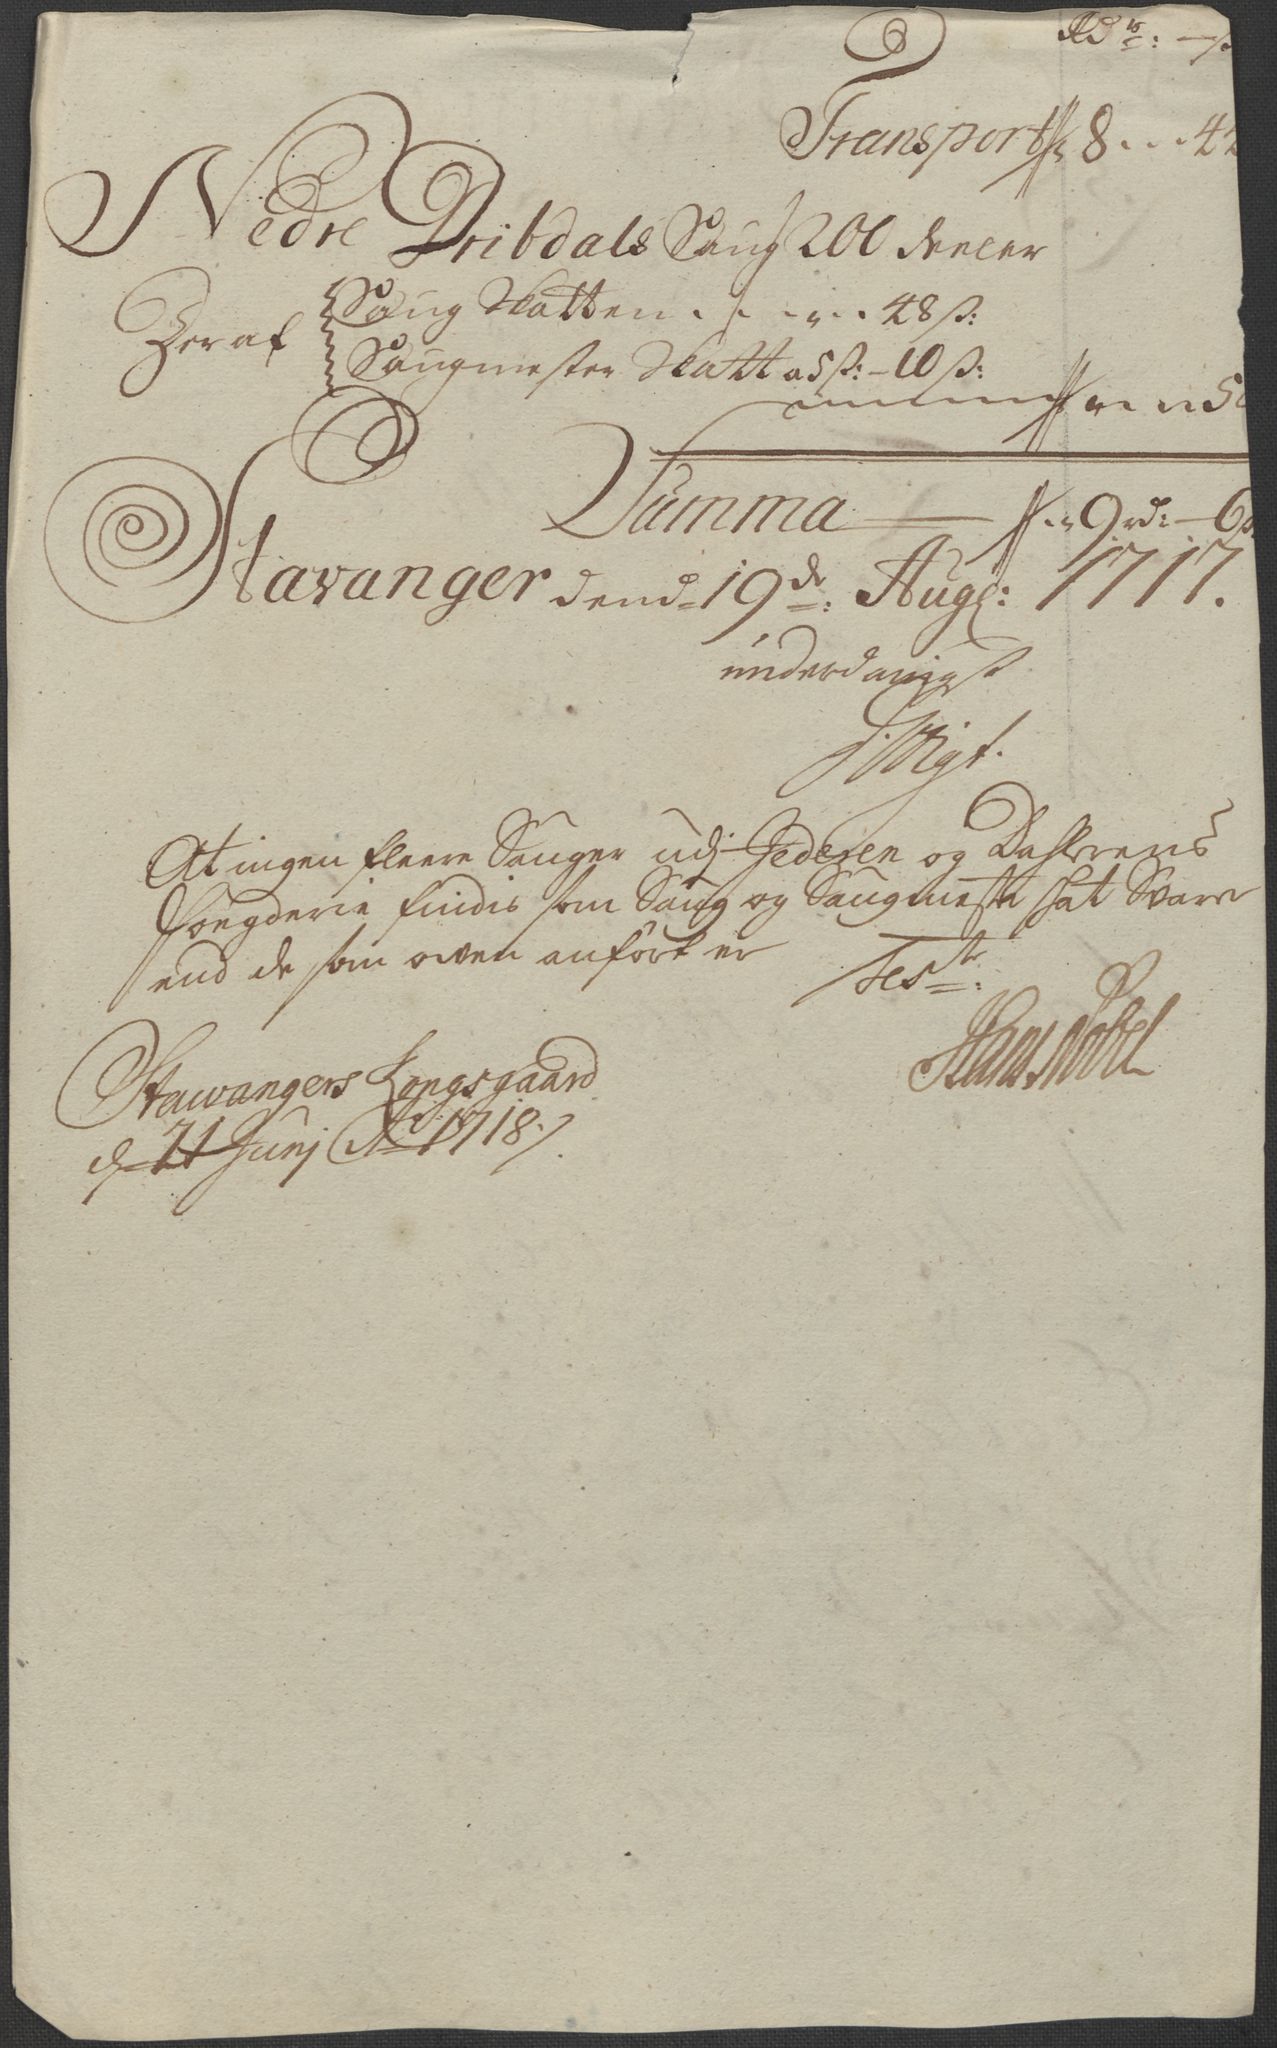 Rd: ß
Transport 8 . . . 42
Nedre Dribdals Saug 200 deeler
Deraf Saug Skatten . . . . . 48 ß:
Saugmester Skatt a 5 ß: - 10 ß:
58
Summa 9 rd: - 6 ß
Stavanger dend 19de: Augs: 1717.
underdanigst
At ingen fleere Sauger udj Jederen og Dahlernes
Fougderie findis som Saug og Saugmester skat Svarer
end de som oven anfört er Test:
Hans Nobel
Stawangers Kongsgaard
d 21 Junj Ao 1718.